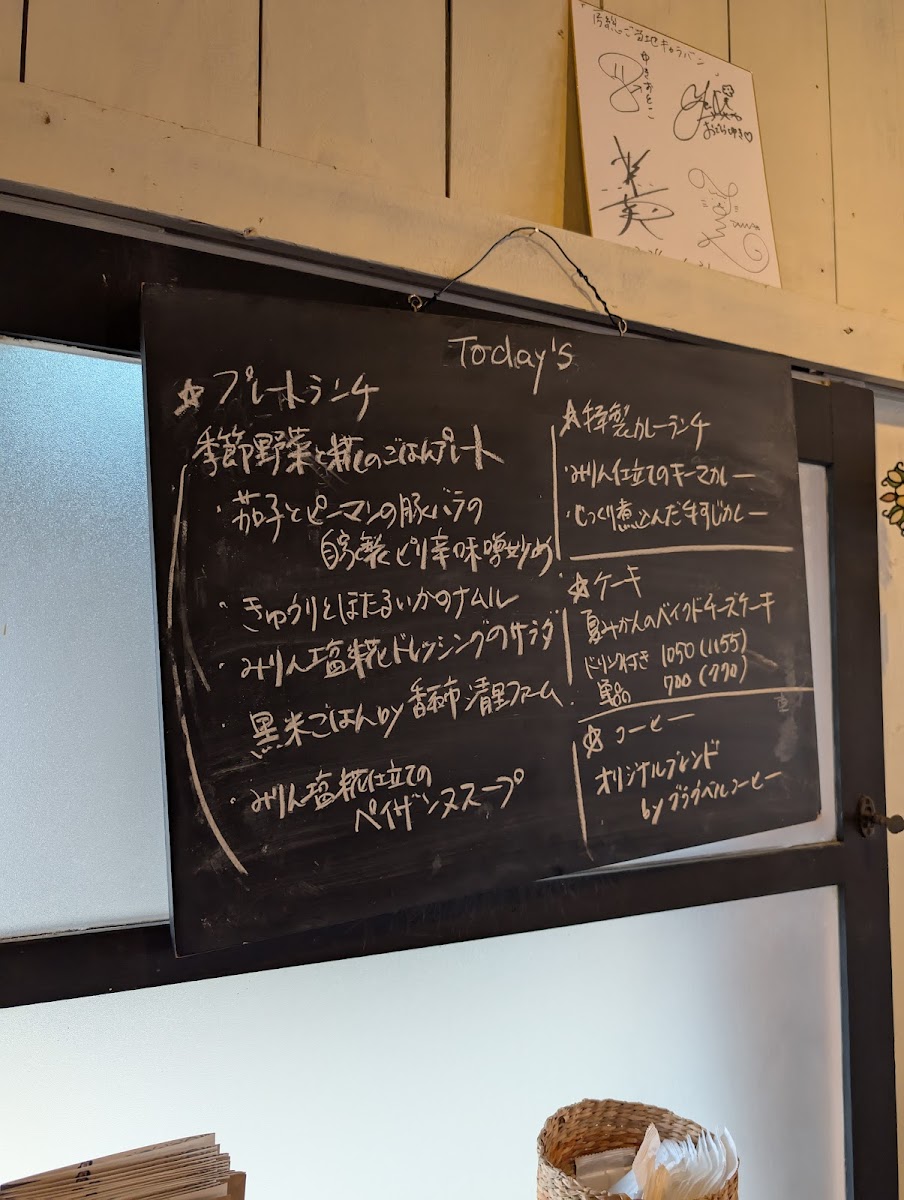 「房総ご当地キャラバン」
ゆきおとこ
Today's
☆プレートランチ
季節野菜と糀のごはんプレート
・茄子とピーマンの豚バラの
自家製ピリ辛味噌炒め
・きゅうりとほたるいかのナムル
・みりん塩糀ドレッシングのサラダ
・黒米ごはん by 香取市 清里ファーム
・みりん塩糀仕立ての
ペイザンヌスープ
☆特製カレーランチ
・みりん仕立てのキーマカレー
・じっくり煮込んだ牛すじカレー
☆ケーキ
夏みかんのベイクドチーズケーキ
ドリンク付き 1050(1155)
単品 700(770)
☆コーヒー
オリジナルブレンド
by グラベルコーヒー